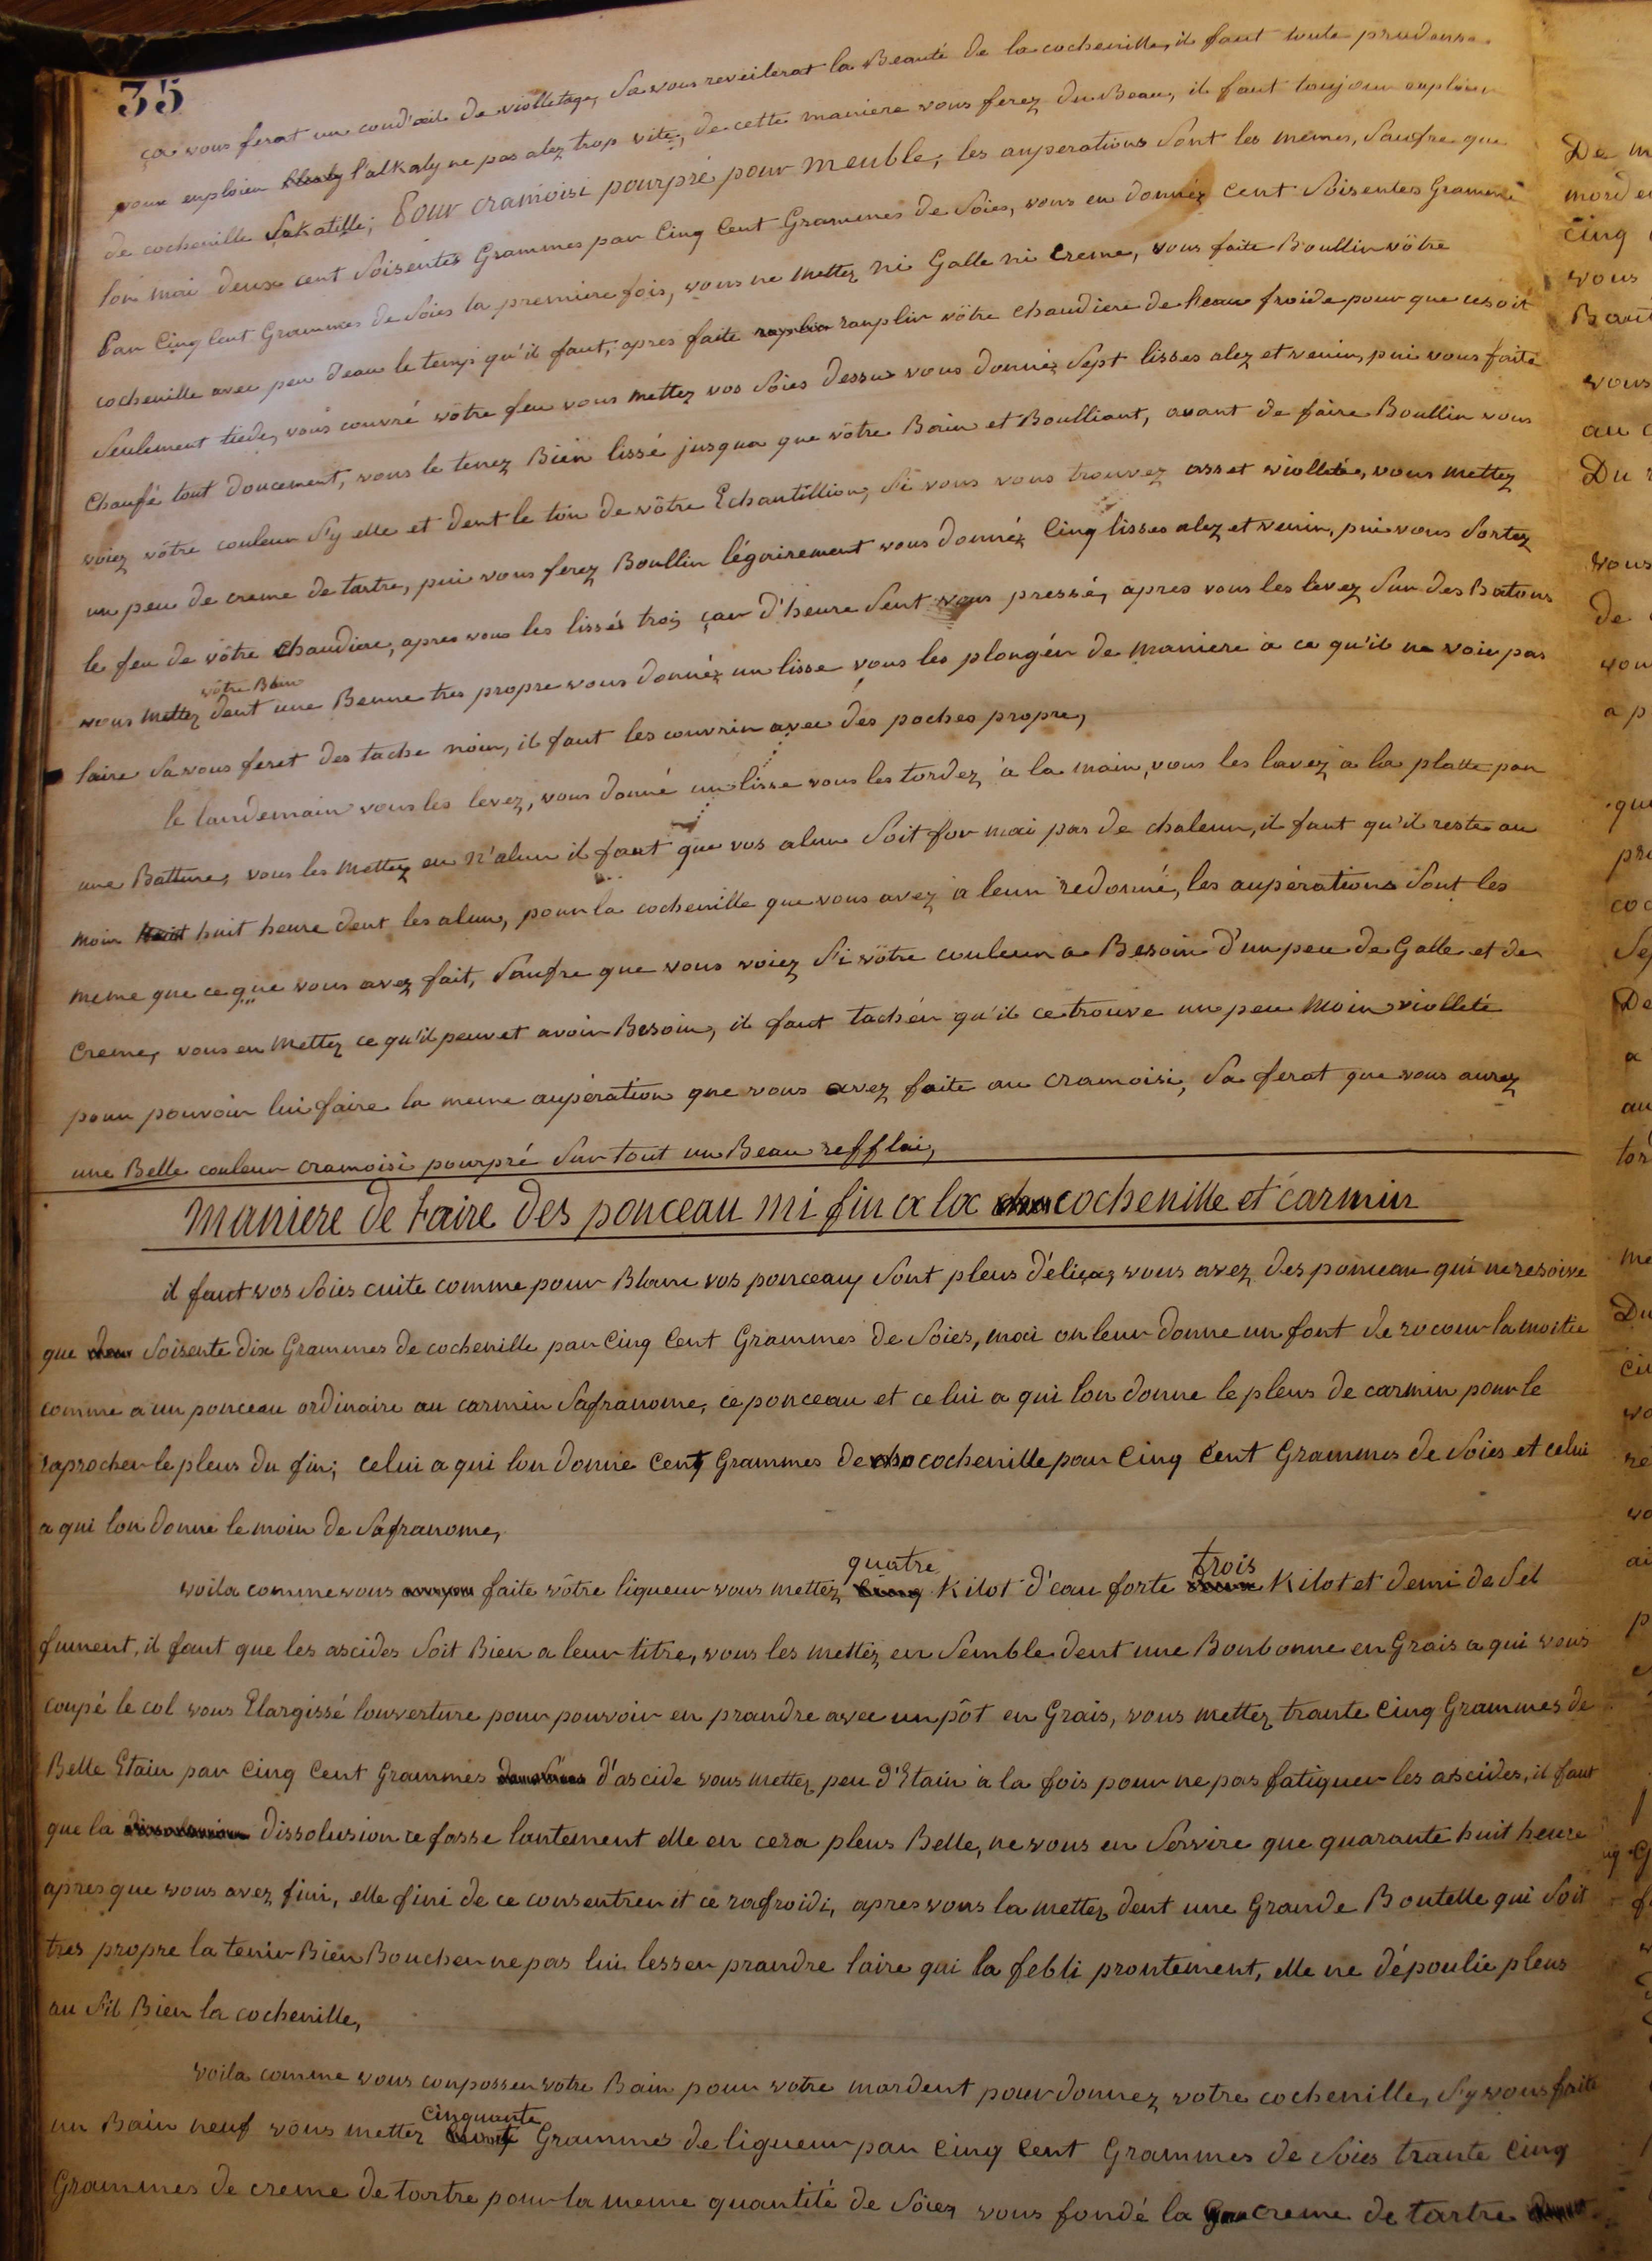 35
ça vous ferat un coud'œil de violletage, Sa vous reveilerat la Beauté de la cochenille, il faut toute prudense
pour enploier l'alkaly ne pas alez trop vite, de cette maniere vous ferez du Beau, il faut toujour enploier
de cochenille Sakatille; Pour cramoisi pourpré pour meuble, les auperations Sont les mêmes, Saufre que
lon mai deux cent Soisentes Grammes par Cinq Cent Grammes de Soies, vous en donnéz Cent Soisentes Gramme
Par Cinq Cent Grammes de Soies la premiere fois, vous ne mettez ni Galle ni Creme, vous faite Boullir vôtre
cochenille avec peu d'eau le temps qu'il faut, apres faite ranplir vôtre chaudiere de heau froide pour que ce soit
Seulement tiede, vous couvré vôtre feu vous mettez vos Soies dessus vous donnéz Sept lisses alez et venir, pui vous faite
Chaufé tout doucement, vous le tenez Bien lissé jusqua que vôtre Bain et Boulliant, avant de faire Boullir vous
voiez vôtre couleur S'y elle et dent le ton de vôtre Echantillion, Si vous vous trouvez asset violleté, vous mettez
un peu de creme de tartre, pui vous ferez Boullir légairement vous donnéz Cinq lisses alez et venir, pui vous Sortez
le feu de vôtre Chaudiere, apres vous les lissés trois çar d'heure Sent vous pressé, apres vous les levez Sur des Batons
vôtre Bain
vous mettez dent une Benne tres propre vous donnéz un lisse vous les plongéir de maniere a ce qu'il ne voie pas
laire Sa vous feret des tache noir, il faut les couvrir avec des poches propre,
le landemain vous les levez, vous donné un lisse vous les tordez à la main, vous les lavez a la platte par
une Batture, vous les mettez en n'alun il faut que vos alun Soit for mai pas de chaleur, il faut qu'il reste au
moin huit heure dent les alun, pour la cochenille que vous avez a leur redonné, les aupérations Sont les
meme que ce que vous avez fait, Saufre que vous voiez Si vôtre couleur a Besoin d'un peu de Galle et de
Creme, vous en mettez ce qu'il peuvet avoir Besoin, il faut tachér qu'il ce trouve un peu moin violleté
pour pouvoir lui faire la meme aupération que vous avez faite au cramoisi, Sa ferat que vous aurez
une Belle couleur cramoisi pourpré Sur tout un Beau refflai,
Maniere de Faire des ponceau mi fin a la cochenille et carmin
il faut vos Soies cuite comme pour Blanc vos ponceau Sont pleus déliças vous avez des ponceau qui ne resoive
que Soisente dix Grammes de cochenille par Cinq Cent Grammes de Soies, mai on leur donne un font de rocour la moitié
comme a un ponceau ordinaire au carmin Safranome, ce ponceau et celui a qui lon donne le pleus de carmin pour le
raprocher le pleus du fin; celui a qui lon donne Cent Grammes de cochenille pour Cinq Cent Grammes de Soies et celui
a qui lon donne le moin de Safranome,
quatre trois
voila comme vous faite vôtre liqueur vous mettez Kilot d'eau forte Kilot et demi de Sel
fument, il faut que les ascides Soit Bien a leur titre, vous les mettéz en Semble dent une Bonbonne en Grais a qui vous
coupé le col vous Elargissé louverture pour pouvoir en prandre avec un pôt en Grais, vous mettez trante Cinq Grammes de
Belle Etain par Cinq Cent Grammes d'ascide vous mettez peu d'Etain à la fois pour ne pas fatiguer les ascides, il faut
que la dissolusion ce fasse lantement elle en cera pleus Belle, ne vous en Servire que quarante huit heure
apres que vous avez fini, elle fini de ce consentrer it ce rafroidi, apres vous la mettez dent une Grande Boutelle qui Soit
tres propre la tenir Bien Boucher ne pas lui lesser prandre laire qui la febli prontement, elle ne dépoulie pleus
au Sit Bien la cochenille,
voila comme vous composser votre Bain pour votre mordent pour donnez votre cochenille, S'y vous faite
cinquante
un Bain neuf vous mettez Grammes de liqueur par Cinq Cent Grammes de Soies trante Cinq
Grammes de creme de tartre pour la meme quantité de Soiez vous fondé la creme de tartre